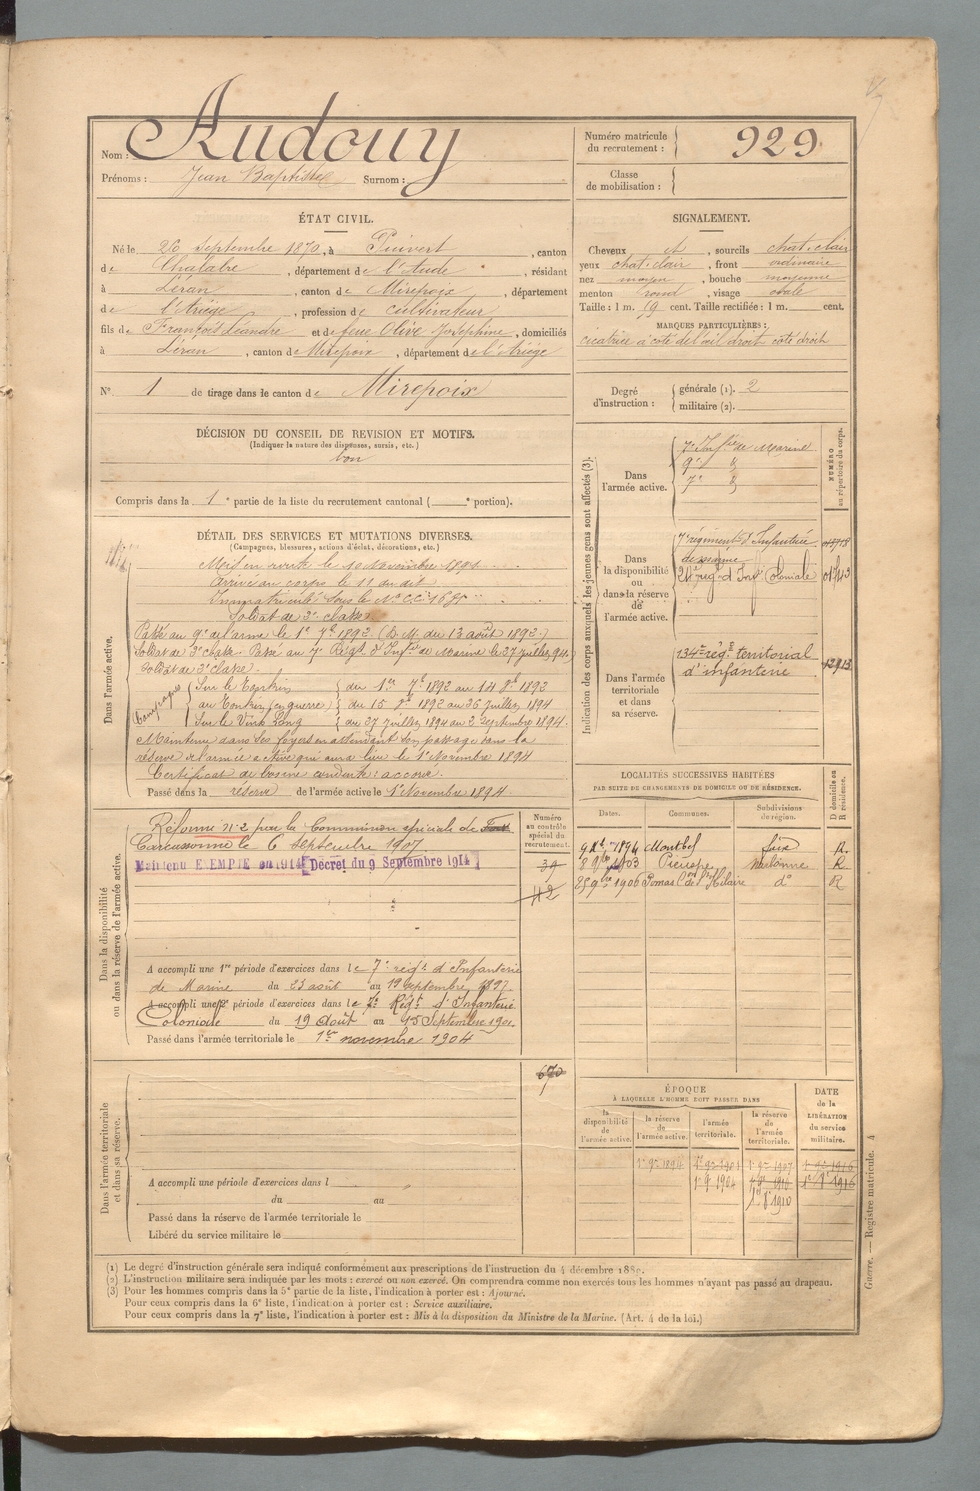 Nom : Audouy
Prénoms : Jean Baptiste Surnom :
Numéro matricule du recrutement : 929
Classe de mobilisation :
ÉTAT CIVIL.
Né le 26 Septembre 1870, à Puivert, canton
de Chalabre, département de l'Aude, résidant
à Léran, canton de Mirepoix, département
de l'Ariège, profession de cultivateur
fils de François Léandre et de feue Olive Joséphine, domiciliés
à Léran, canton de Mirepoix, département de l'Ariège
N° 1 de tirage dans le canton de Mirepoix
DÉCISION DU CONSEIL DE REVISION ET MOTIFS.
(Indiquer la nature des dispenses, sursis, etc.)
bon
Compris dans la 1e partie de la liste du recrutement cantonal ( e portion).
SIGNALEMENT.
Cheveux , sourcils chat. clair
yeux chat. clair, front ordinaire
nez moyen, bouche moyenne
menton rond, visage ovale
Taille : 1 m. 69 cent. Taille rectifiée : 1 m. cent.
MARQUES PARTICULIÈRES :
cicatrice à côté de l'œil droit côté droit
Degré d'instruction : générale (1). 2
militaire (2).
DÉTAIL DES SERVICES ET MUTATIONS DIVERSES.
(Campagnes, blessures, actions d'éclat, décorations, etc.)
Dans l'armée active.
Mis en route le 10 Novembre 1891
Arrivé au corps le 11 du dit
Immatriculé sous le N°
Soldat de 2e classe
Passé au 9e de l'arme le 1er 7bre 1892 (D. M. du 13 août 1892.)
Soldat de 2e classe. Passé au 7e Régt d'Infie de Marine le 27 juillet 94.
Soldat de 2e classe.
Campagnes
Sur le Tonkin du 1er 7bre 1892 au 14 8bre 1892
au Tonkin (en guerre) du 15 8bre 1892 au 26 juillet 1894
Sur le Vinh Long du 27 juillet 1894 au 2 Septembre 1894.
Maintenu dans ses foyers en attendant son passage dans la
réserve de l'armée active qui aura lieu le 1er Novembre 1894
Certificat de bonne conduite : accordé.
Passé dans la réserve de l'armée active le 1er Novembre 1894
Indication des corps auxquels les jeunes gens sont affectés (3).
NUMÉRO au répertoire du corps.
Dans l'armée active.
7e Infie de Marine
9e d°
7e d°
Dans la disponibilité ou dans la réserve de l'armée active.
7e régiment d'Infanterie
de marine
24e régt d'Infie Coloniale
Dans l'armée territoriale et dans sa réserve.
134e régt territorial
d'infanterie
Dans la disponibilité ou dans la réserve de l'armée active.
Numéro au contrôle spécial du recrutement.
Réformé N° 2 par la Commission spéciale de
Carcassonne le 6 septembre 1907
Maintenu EXEMPTÉ en 1914 Décret du 9 Septembre 1914
39
42
A accompli une 1re période d'exercices dans le 7e régt d'Infanterie
de Marine du 23 août au 19 septembre 1897.
A accompli une 2e période d'exercices dans le 7e Régt d'Infanterie
Coloniale du 19 Août au 15 Septembre 1901.
Passé dans l'armée territoriale le 1er novembre 1904
LOCALITÉS SUCCESSIVES HABITÉES
PAR SUITE DE CHANGEMENTS DE DOMICILE OU DE RÉSIDENCE.
Dates. Communes. Subdivisions de région. D domicile ou R résidence.
1894 Montbel Foix R.
1903 Narbonne R
25 9bre 1906 Pomas Con de St Hilaire d° R
Dans l'armée territoriale et dans sa réserve.
670
A accompli une période d'exercices dans l
du au
Passé dans la réserve de l'armée territoriale le
Libéré du service militaire le
ÉPOQUE
À LAQUELLE L'HOMME DOIT PASSER DANS
la disponibilité de l'armée active.
la réserve de l'armée active.
l'armée territoriale.
la réserve de l'armée territoriale.
DATE de la LIBÉRATION du service militaire.
1er 9bre 1894
1er 9bre 1904
1er 8bre 1910
(1) Le degré d'instruction générale sera indiqué conformément aux prescriptions de l'instruction du 4 décembre 1889.
(2) L'instruction militaire sera indiquée par les mots : exercé ou non exercé. On comprendra comme non exercés tous les hommes n'ayant pas passé au drapeau.
(3) Pour les hommes compris dans la 5e partie de la liste, l'indication à porter est : Ajourné.
Pour ceux compris dans la 6e liste, l'indication à porter est : Service auxiliaire.
Pour ceux compris dans la 7e liste, l'indication à porter est : Mis à la disposition du Ministre de la Marine. (Art. 4 de la loi.)
Guerre. — Registre matricule. 4